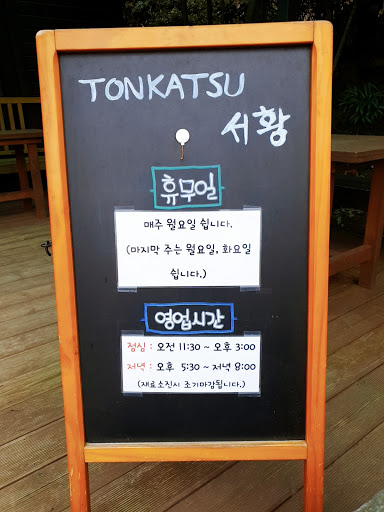 TONKATSU
서황
휴무일
매주 월요일 쉽니다.
(마지막 주는 월요일, 화요일
쉽니다.)
영업시간
점심 : 오전 11:30 ~ 오후 3:00
저녁 : 오후 5:30 ~ 저녁 8:00
(재료소진시 조기마감됩니다.)